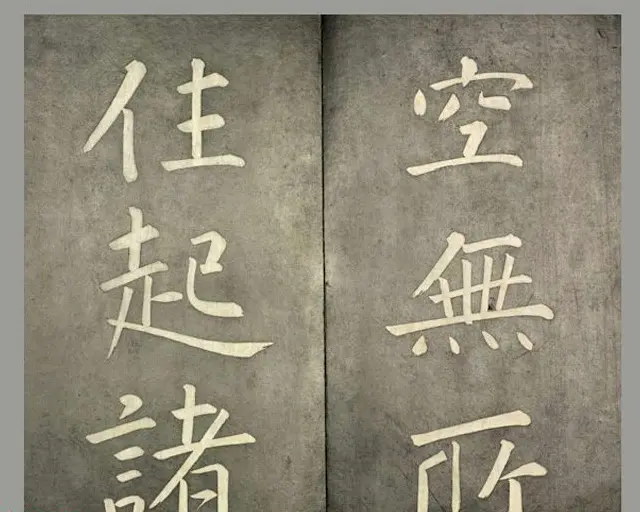 空無所
住起諸